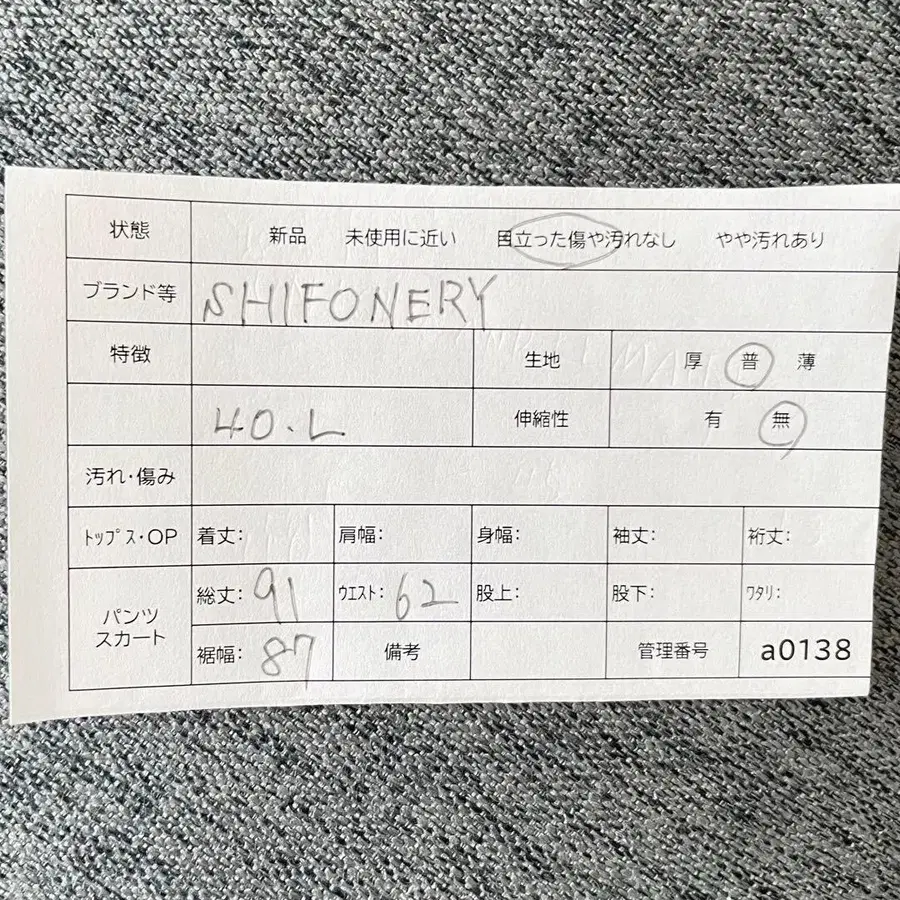 状態 新品 未使用に近い 目立った傷や汚れなし やや汚れあり
ブランド等 SHIFONERY
特徴 生地 厚 普 薄
40.L 伸縮性 有 無
汚れ・傷み
トップス・OP 着丈: 肩幅: 身幅: 袖丈: 裄丈:
パンツ スカート 総丈: 91 ウエスト: 62 股上: 股下: ワタリ:
裾幅: 87 備考 管理番号 a0138